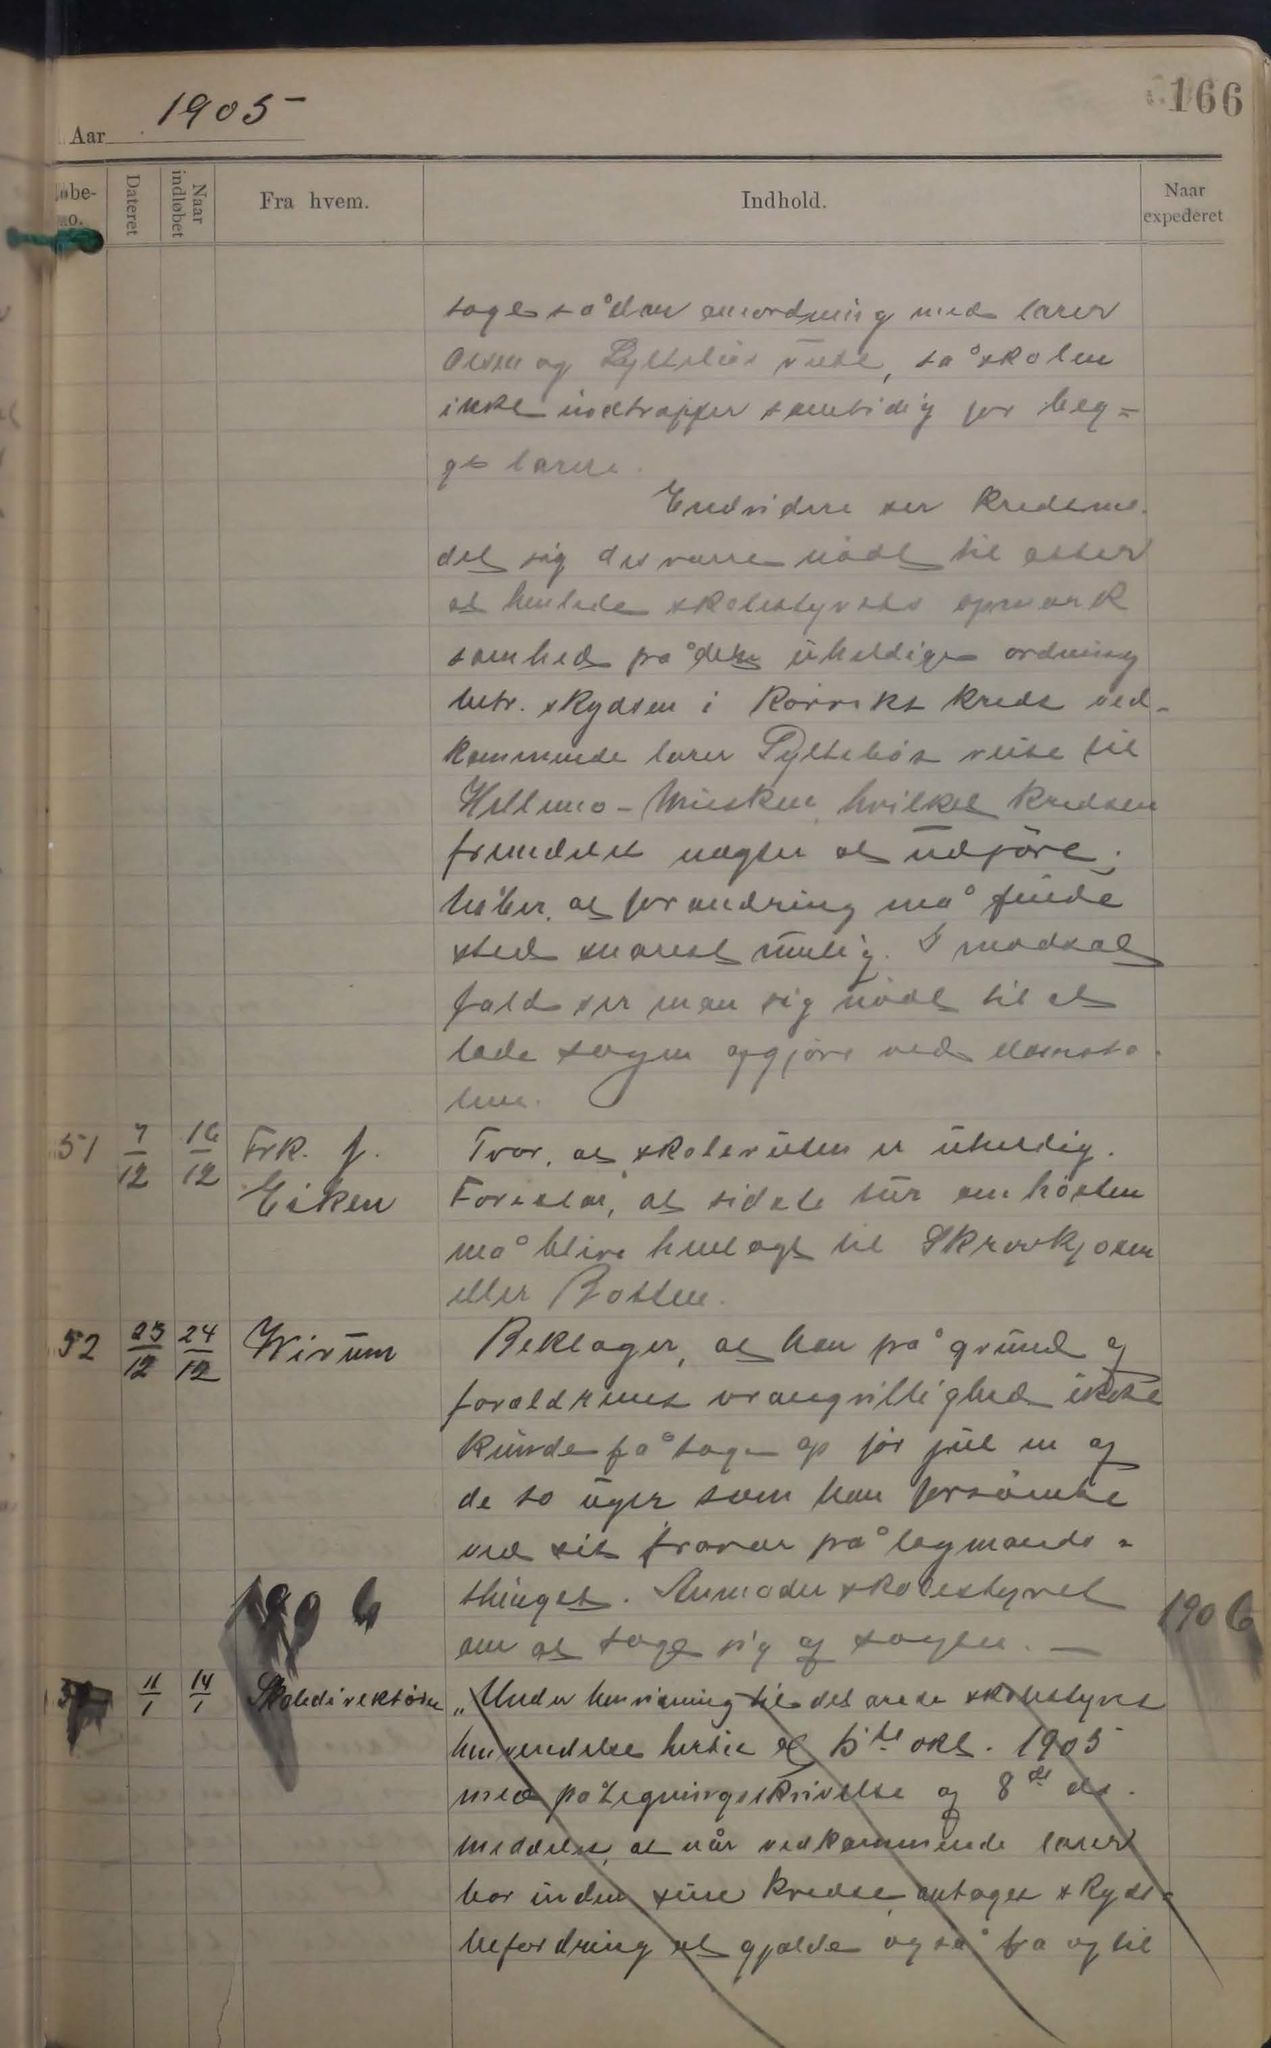 166
Aar 1905
Løbe-
no.
Dateret
Naar
indløbet
Fra hvem.
Indhold.
Naar
expederet
tages sådan anordning med lærer
Olsen og Pyttebøs rute, så skolen
ikke indtræffer samtidig for beg=
ge lærere.
Endvidere ser kredsmø-
det sig desværre nødt til atter
at henlede skolestyrets opmærk
somhed på den uheldige ordning
betr. skydsen i Rørviks kreds ved-
kommende lærer Pyttebøs reise til
Hellmo - Musken, hvilket kredsen
fremdeles negter at udføre;
håber, at forandring må finde
sted snarest mulig. I modsat
fald ser man sig nødt til at
lade sagen afgjøre ved domsto-
lene.
51 7/12 16/12 Frk. J. Eiken
Tror, at skoleruten er uheldig.
Foreslår, at sidste tur om høsten
må blive henlagt til Skrovkjosen
eller Botten.
52 23/12 24/12 Wirum
Beklager, at han på grund af
forældrenes vrangvillighed ikke
kunde få tage op før jul en af
de to uger som han forsømte
ved sit fravær på lagmands=
thinget. Anmoder skolestyret
om at tage sig af sagen. —
1906
1906
11/1 14/1 Skoledirektøren
„Under henvisning til det ærede skolestyres
henvendelse hertil af 5te okt. 1905
med påtegningsskrivelse af 8de ds.
meddeles, at når vedkommende lærer
bor inden sine kredse, antages skyds=
befordring at gjælde også fra og til